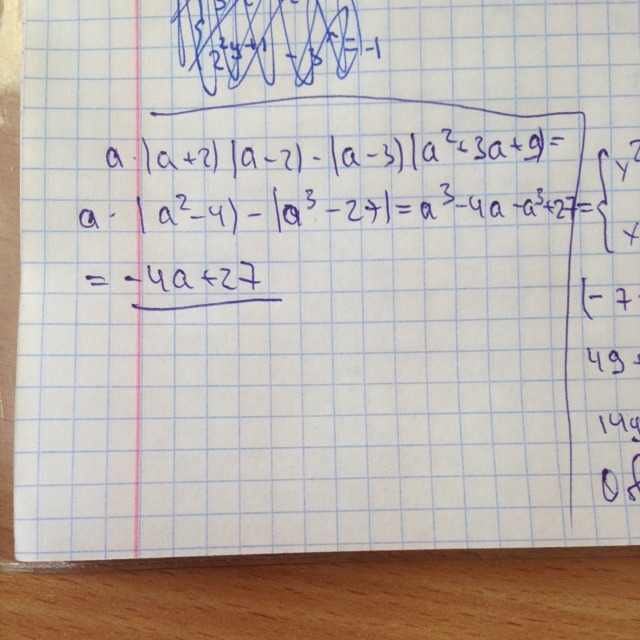 a·(a+2)(a-2)-(a-3)(a²+3a+9)=
a·(a²-4)-(a³-27)=a³-4a-a³+27=
=-4a+27
{y²
x
(-7
49
14y